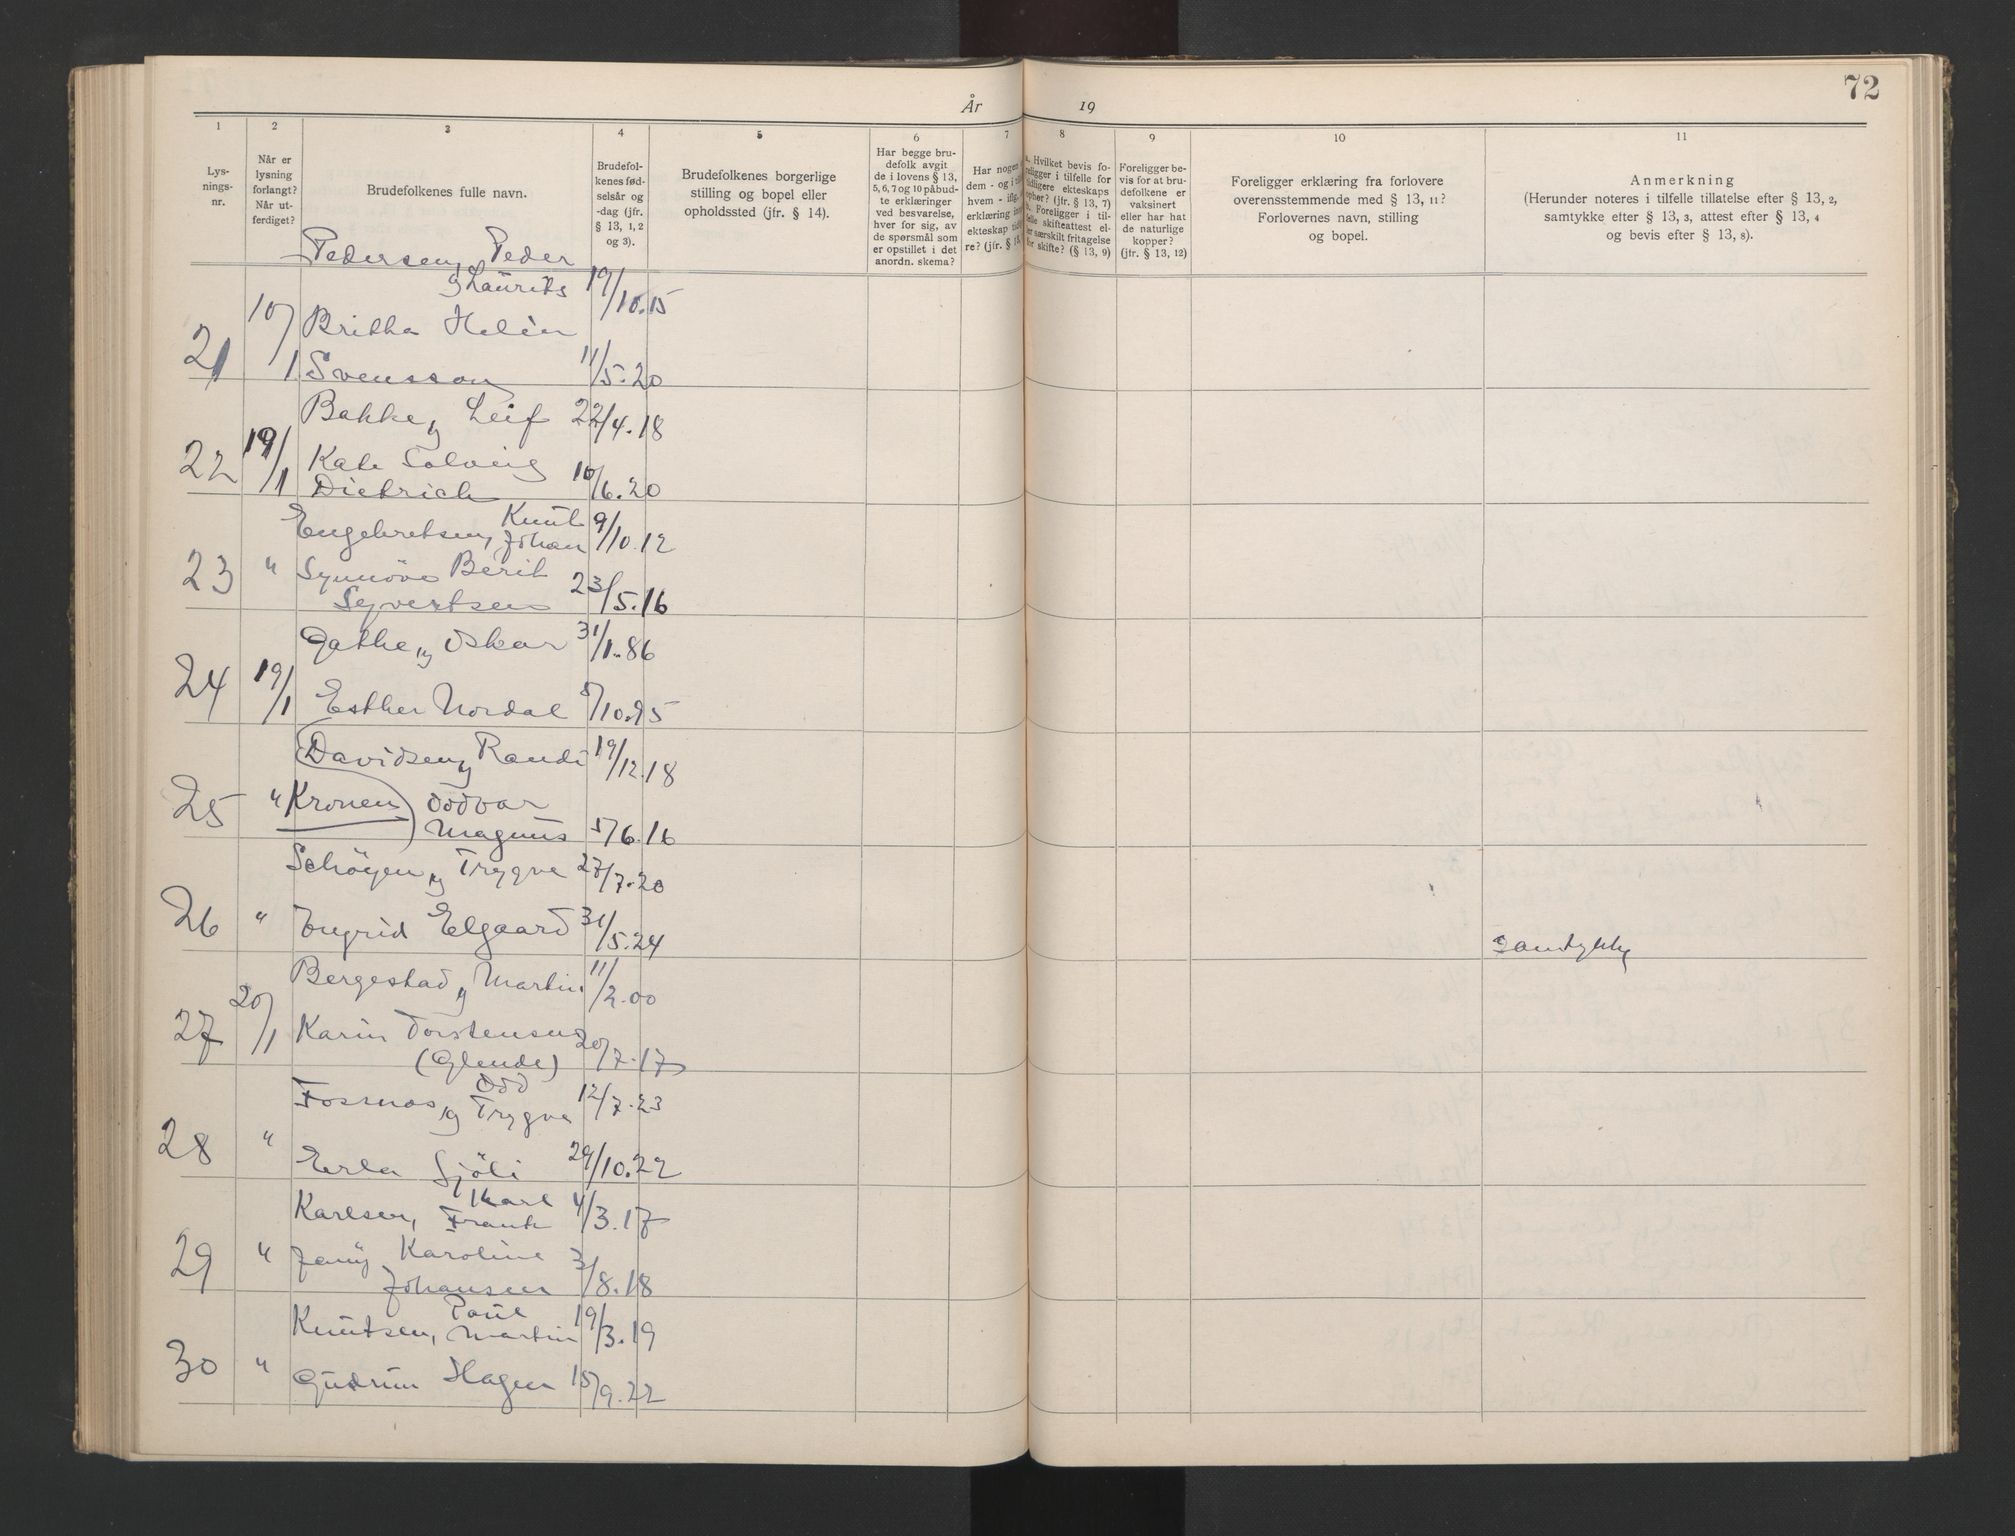 72
År 19
1 2 3 4 5 6 7 8 9 10 11
Lys-
nings-
nr.
Når er
lysning
forlangt?
Når ut-
ferdiget?
Brudefolkenes fulle navn.
Brudefol-
kenes fød-
selsår og
-dag (jfr.
§ 13, 1, 2
og 3).
Brudefolkenes borgerlige
stilling og bopel eller
opholdssted (jfr. § 14).
Har begge bru-
defolk avgit
de i lovens § 13,
5, 6, 7 og 10 påbud-
te erklæringer
ved besvarelse,
hver for sig, av
de spørsmål som
er opstillet i det
anordn. skema?
Har nogen
dem - og i
hvem - ifig.
erklæring
ekteskap
re? (jfr. §
a. Hvilket bevis fo-
religger i tilfelle for
tidligere ekteskaps
ophør? (jfr. § 13, 7)
b. Foreligger i til-
felle skifteattest el-
ler særskilt fritagelse
for skifte? (§ 13, 9)
Foreligger be-
vis for at bru-
defolkene er
vaksinert
eller har hat
de naturlige
kopper?
(jfr. § 13, 12)
Foreligger erklæring fra forlovere
overensstemmende med § 13, 11?
Forlovernes navn, stilling
og bopel.
Anmerkning
(Herunder noteres i tilfelle tillatelse efter § 13, 2,
samtykke efter § 13, 3, attest efter § 13, 4
og bevis efter § 13, 8).
Pedersen, Peder
og Laurits 19/10.15
21 10/1 Britha Helén
Svensson 11/5.20
Bakke, og Leif 22/4.18
22 19/1 Kate Solveig
Dietrich 10/6.20
Engebretsen, Knut
Johan 9/10.12
23 " Synnöve Berit
Syvertsen 23/5.16
Gathe, og Oskar 31/1.86
24 19/1 Esther Nordal 5/10.95
Davidsen, og Randi 19/12.18
25 " Kronen) Oddvar
Magnus 5/6.16
Schöyen, og Trygve 27/7.20
26 " Ingrid Elgaard 31/5.24 Samtykke
Bergestad, og Martin 11/2.00
27 20/1 Karin Torstensen
(Glende) 20/7.17
Fosmos, og Odd
Trygve 12/7.23
28 " Erla Sjöli 29/10.22
Karlsen, Karl
Frank 4/3.17
29 " Jenny Karoline
Johansen 3/8.18
Knutsen, Paul
Martin 19/3.19
30 " Gudrun Hagen 15/9.22